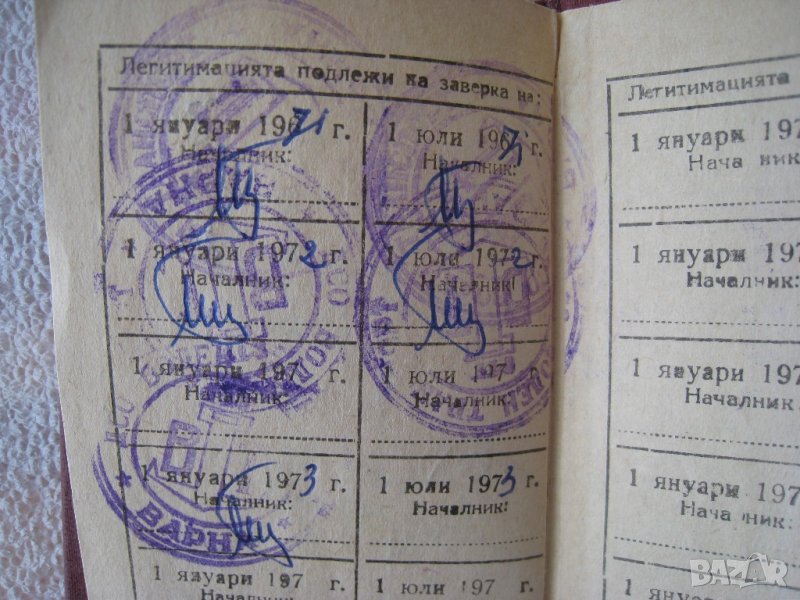 Легитимацията подлежи на заверка на:
1 януари 1971 г.
Началник:
1 юли 1971 г.
Началник:
1 януари 1972 г.
Началник:
1 юли 1972 г.
Началник:
1 януари 197 г.
Началник:
1 юли 197 г.
Началник:
1 януари 1973 г.
Началник:
1 юли 1973 г.
Началник:
1 януари 197 г.
Началник
1 юли 197 г.
ВАРНА
Легитимацията
1 януари 197
Началник
1 януари 197
Началник:
1 януари 197
Началник
1 януари 197
Началник
1 януари
BAZAR